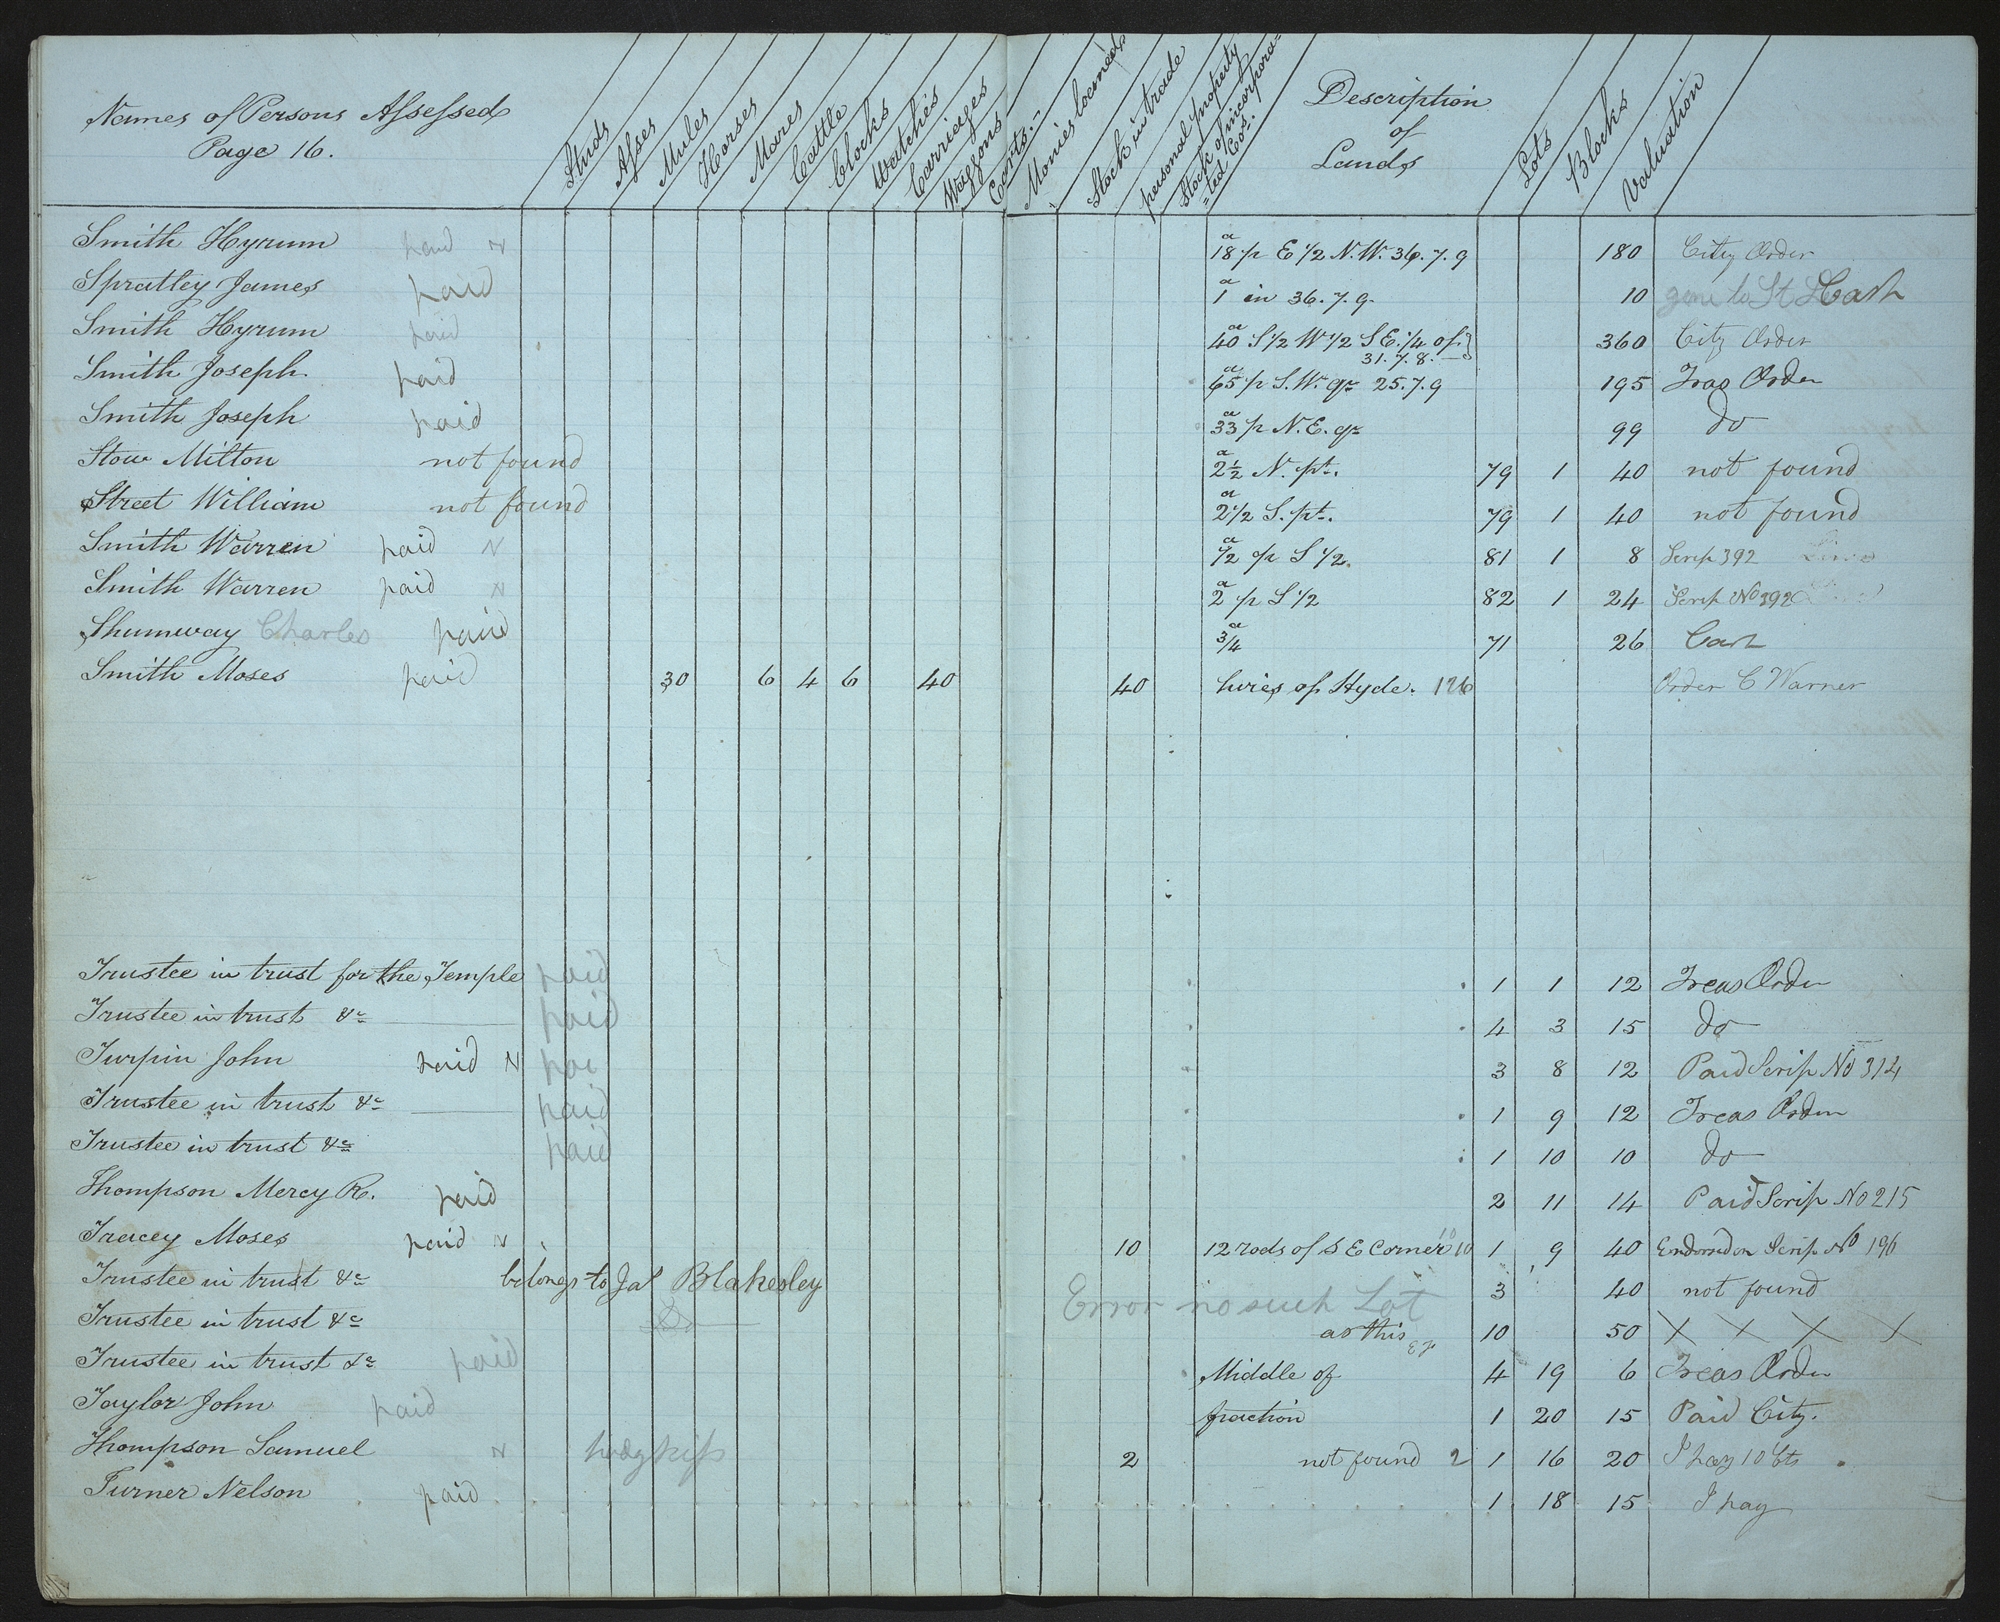 Names of Persons Assessed
Page 16.
Studs
Asses
Mules
Horses
Mares
Cattle
Clocks
Watches
Carriages
Waggons
Carts.
Monies loaned
Stock in trade
personal property
Stock of incorpora=
=ted Cos.
Description
of
Lands
Lots
Blocks
Valuation
Smith Hyrum paid N 18 a p E 1/2 N.W. 36.7.9 180 City Order
Spratley James paid 1 a in 36.7.9. 10 gone to St L Cash
Smith Hyrum paid 40 a S 1/2 W 1/2 S E. 1/4 of 360 City Order
31.7.8.
Smith Joseph paid 65 a p S.W. qr 25.7.9 195 Treas Order
Smith Joseph paid 33 a p N.E. qr 99 do
Stow Milton not found 2 1/2 a N. pt. 79 1 40 not found
Street William not found 2 1/2 a S. pt. 79 1 40 not found
Smith Warren paid N 1/2 a p S 1/2 81 1 8 Scrip 392
Smith Warren paid N 2 a p S 1/2 82 1 24 Scrip No 392
Shumway Charles paid 3/4 a 71 26 Cash
Smith Moses paid 30 6 4 6 40 40 lives of Hyde. 126 Order C Warner
Trustee in trust for the Temple paid 1 1 12 Treas Order
Trustee in trust &c paid 4 3 15 do
Turpin John paid N pai 3 8 12 Paid Scrip No 314
Trustee in trust &c paid 1 9 12 Treas Order
Trustee in trust &c paid 1 10 10 do
Thompson Mercy R. paid 2 11 14 Paid Scrip No 215
Tracey Moses paid N 10 12 rods of S E Corner 10 1 9 40 Endorsed on Scrip No 196
Trustee in trust &c belongs to Jas Blakesley 3 40 not found
Error no such Lot
Trustee in trust &c Do as this 10 50 X X X X
Trustee in trust &c paid Middle of 4 19 6 Treas Order
Taylor John paid fraction 1 20 15 Paid City.
Thompson Samuel N hodgkiss 2 not found 2 1 16 20 I hay 10 Cts
Turner Nelson paid 1 18 15 I hay